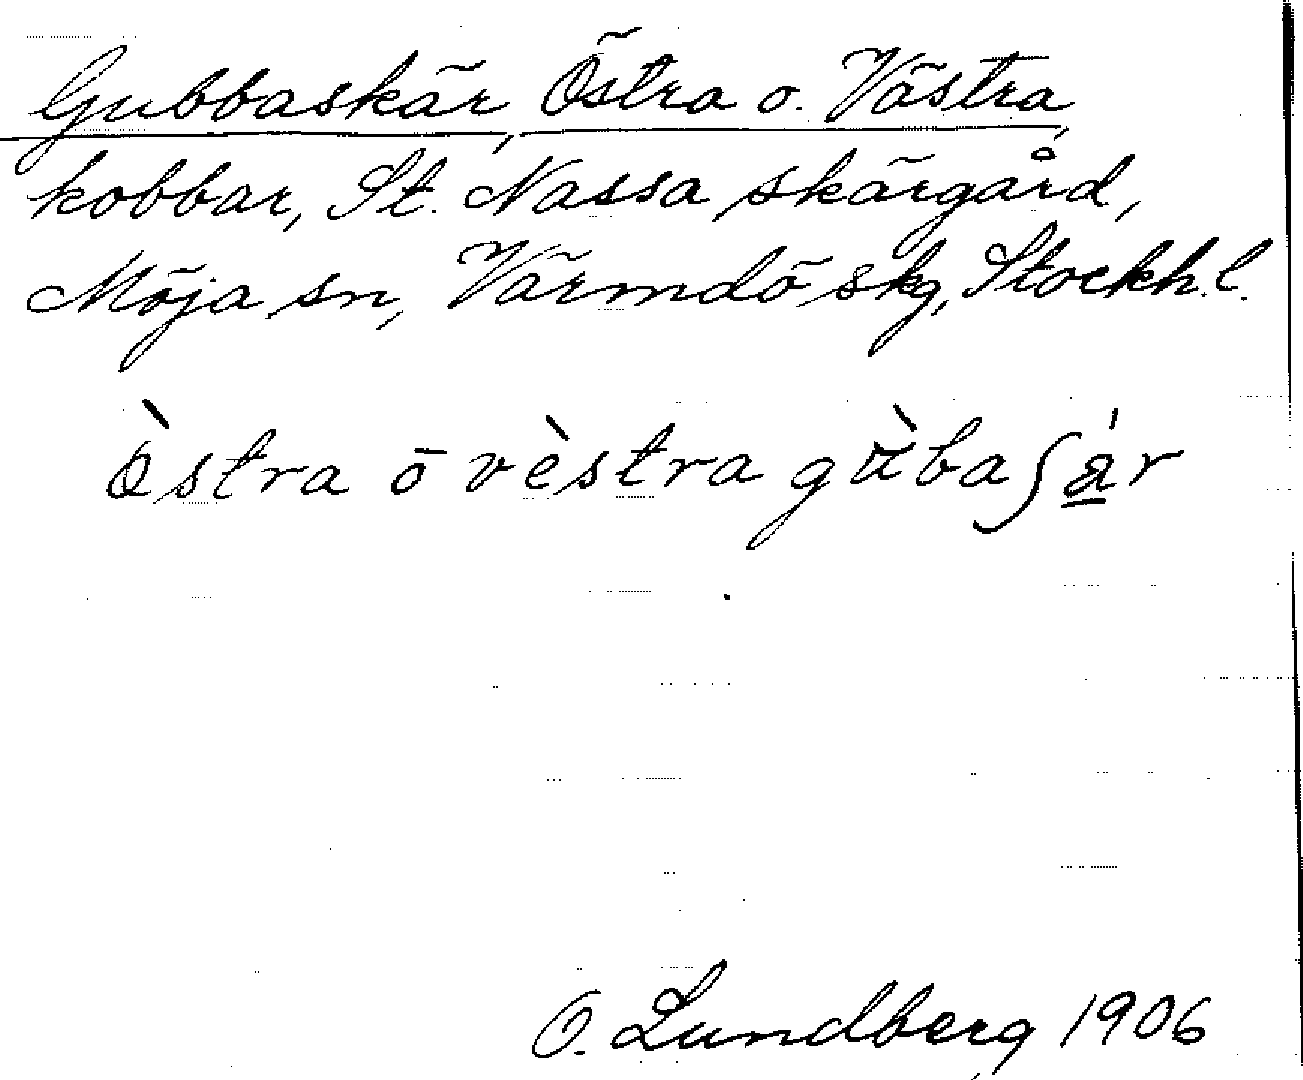 Gubbaskär, Östra o. Västra,
kobbar, St. Nassa skärgård,
Möja sn, Värmdö skg, Stockh. l.
Ꝋ̀stra ō vèstra gu̇̀baʃá̲r
O. Lundberg 1906